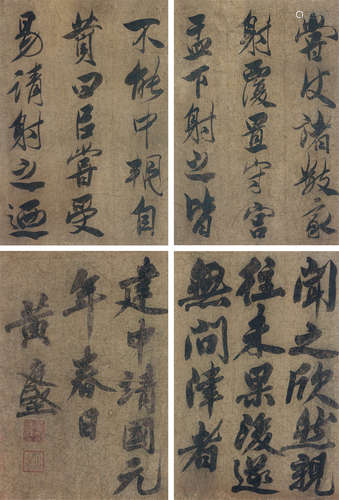 嘗使諸數家
射覆置守宮
盂下射之皆
不能中朔自
贊曰臣嘗受
易請射之迺
聞之欣然親
往未果後遂
無問津者
建中靖國元
年春日
黃